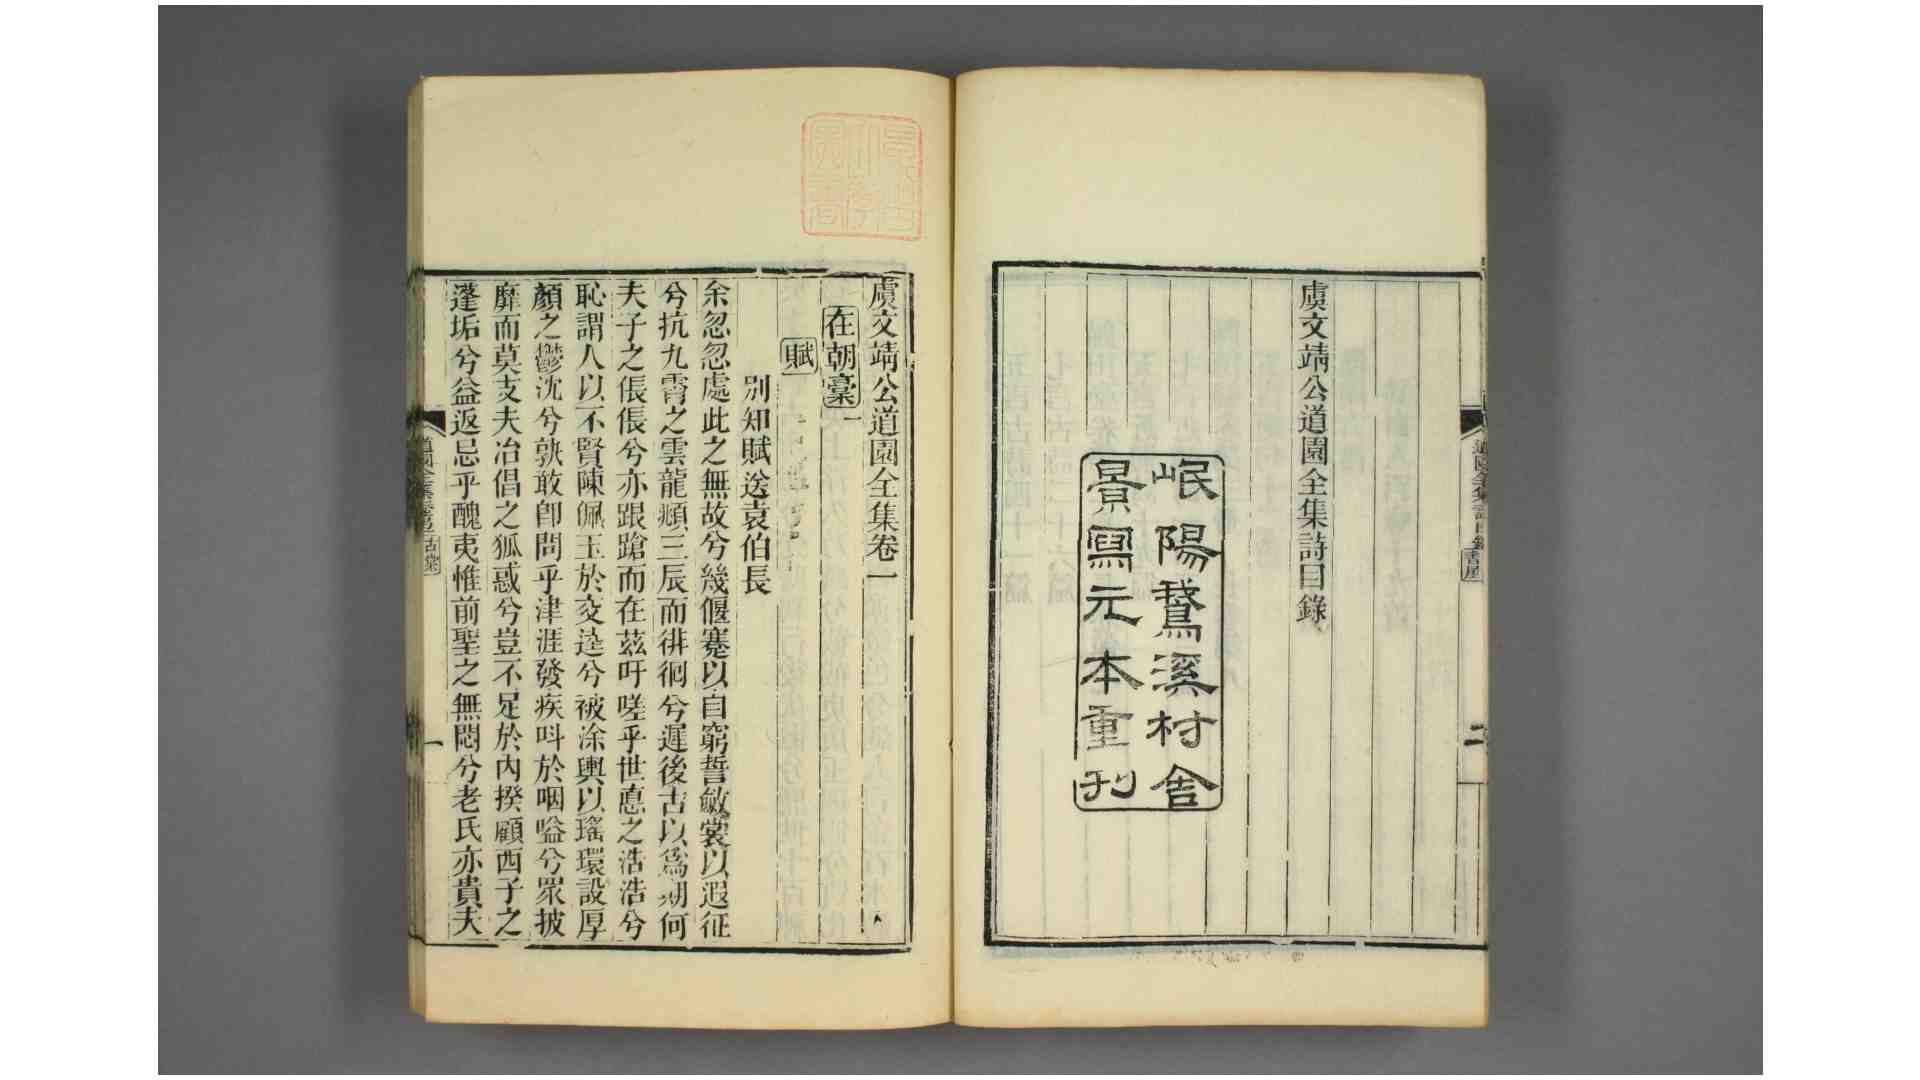 虞文靖公道園全集詩目錄
岷陽鵞溪村舍
景寫元本重刊
虞文靖公道園全集卷一
在朝藁一
賦
別知賦送袁伯長
余忽忽處此之無故兮幾偃蹇以自窮誓斂裳以遐征
兮抗九霄之雲龍頫三辰而徘徊兮遲後古以爲期何
夫子之倀倀兮亦踉蹌而在茲吁嗟乎世悳之浩浩兮
恥謂人以不賢陳佩玉於交逵兮被涂輿以瑤環設厚
顏之鬱沈兮孰敢卽問乎津涯發疾呌於咽嗌兮眾披
靡而莫支夫冶倡之狐惑兮豈不足於內揆顧西子之
蓬垢兮益返忌乎醜夷惟前聖之無悶兮老氏亦貴夫